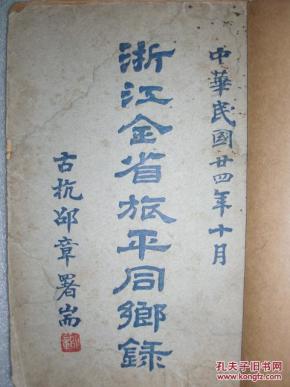 中華民國廿四年十月
浙江全省旅平同鄉錄
古杭邵章署耑
孔夫子旧书网